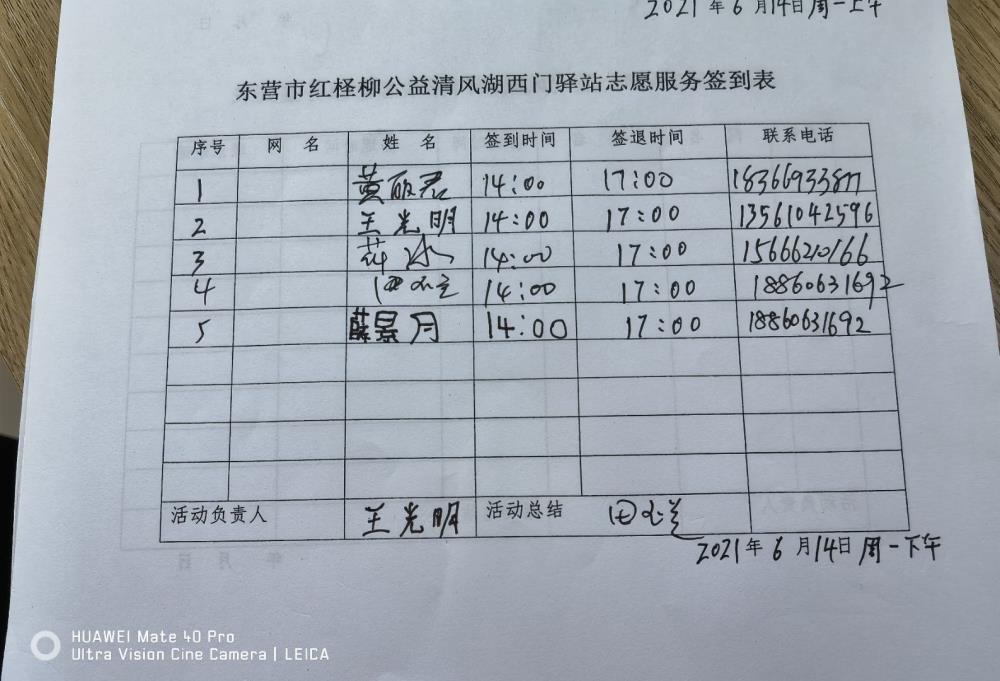 2021年6月14日周一上午
东营市红柽柳公益清风湖西门驿站志愿服务签到表
序号 网 名 姓 名 签到时间 签退时间 联系电话
1 黄丽君 14:00 17:00
2 王光明 14:00 17:00 13561042596
3 14:00 17:00 15666210166
4 14:00 17:00 18860631692
5 薛景月 14:00 17:00 18860631692
活动负责人 王光明 活动总结
2021年6月14日周一下午
HUAWEI Mate 40 Pro
Ultra Vision Cine Camera | LEICA